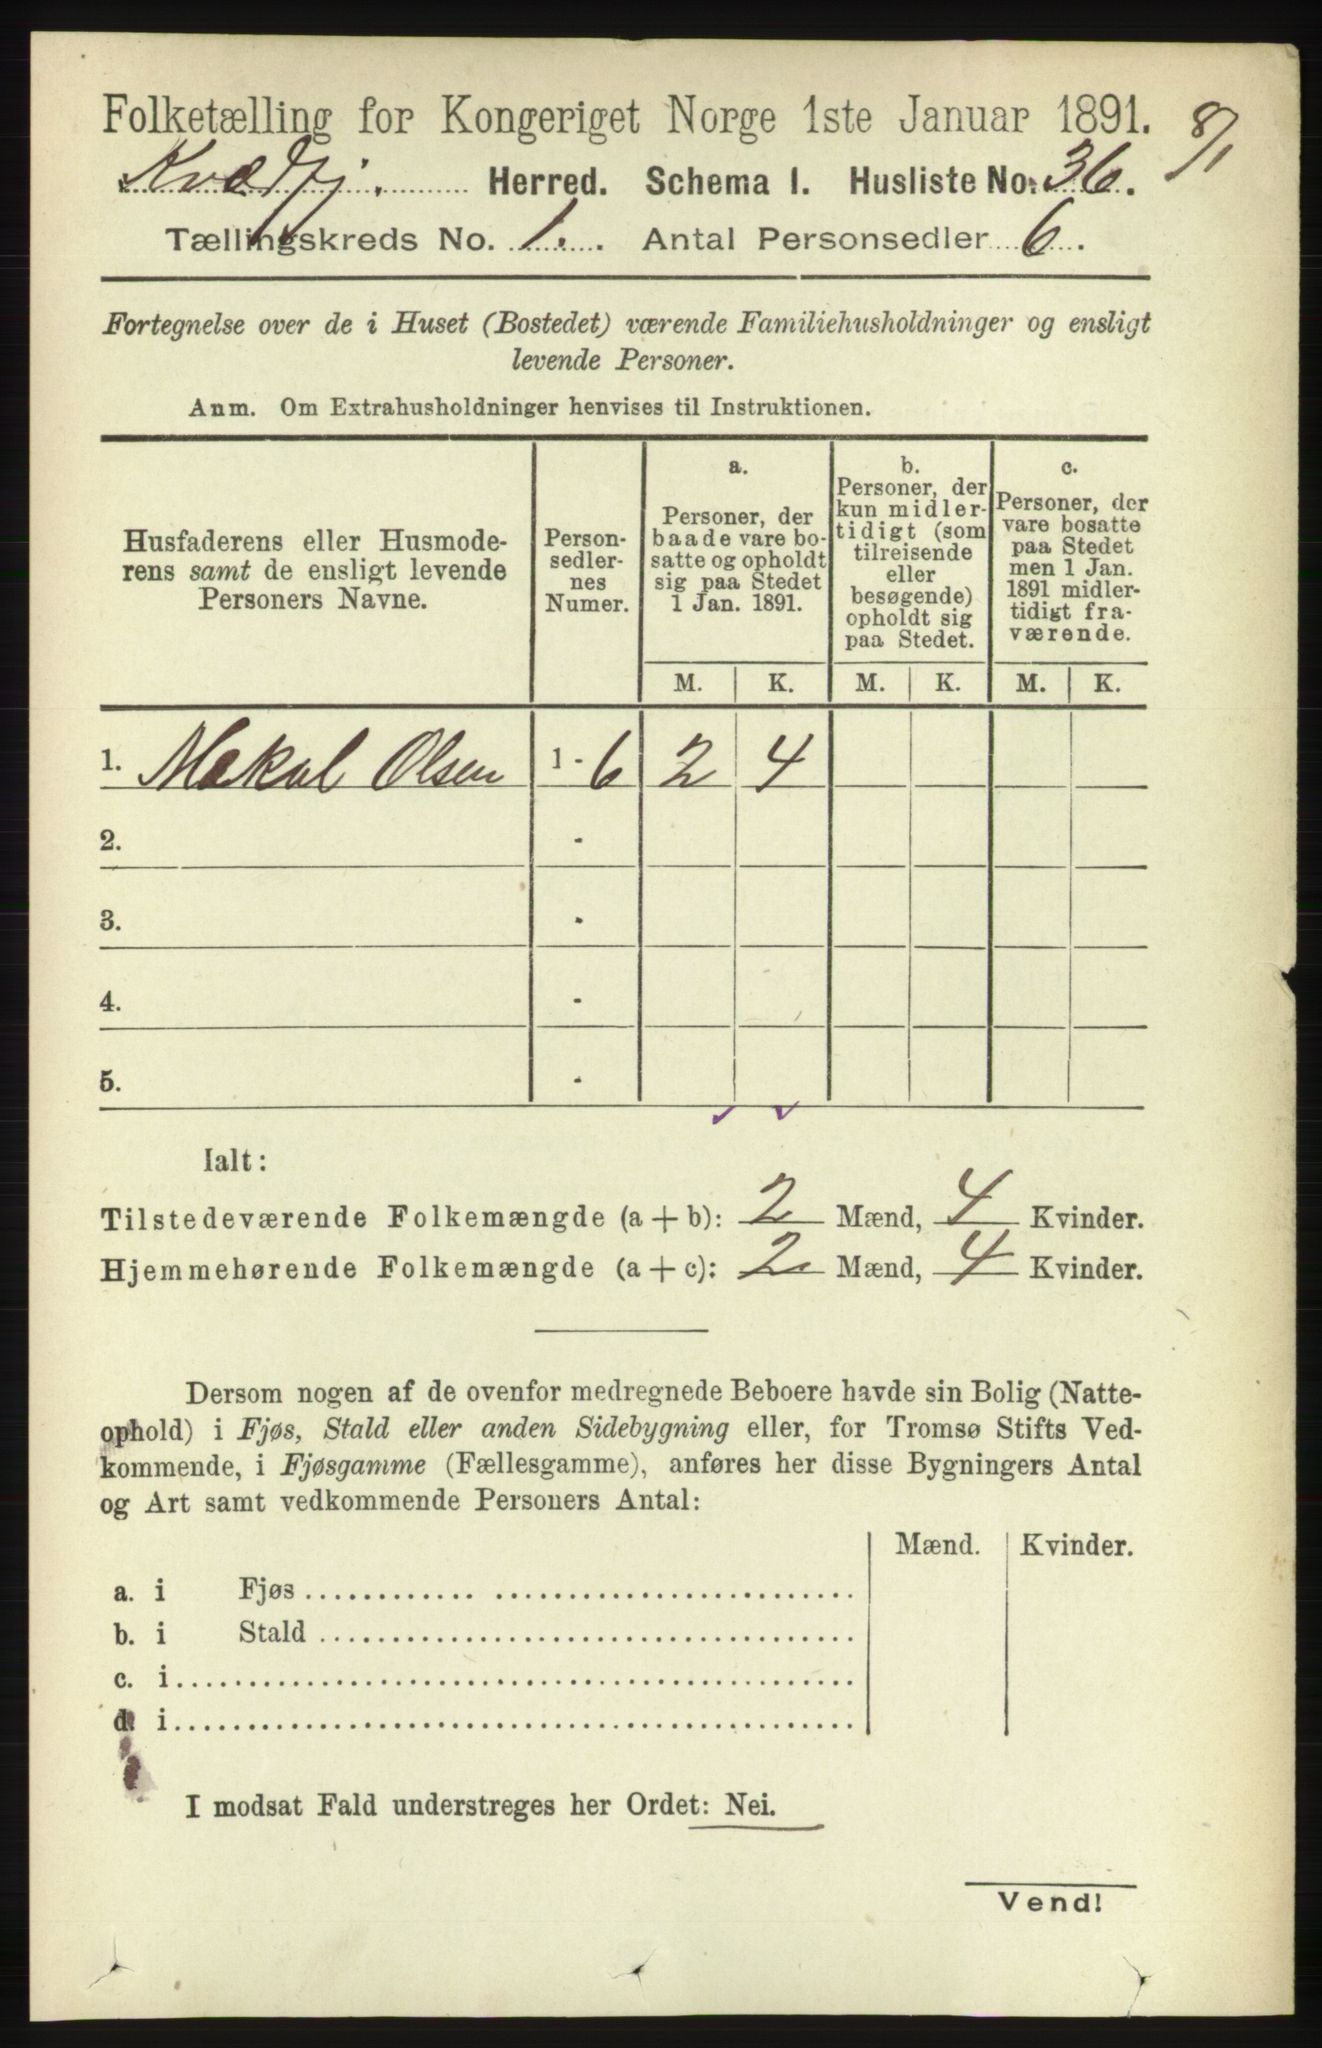 Folketælling for Kongeriget Norge 1ste Januar 1891. 8/1
Kvædfj. Herred. Schema I. Husliste No. 36.
Tællingskreds No. 1. Antal Personsedler 6.
Fortegnelse over de i Huset (Bostedet) værende Familiehusholdninger og ensligt
levende Personer.
Anm. Om Extrahusholdninger henvises til Instruktionen.
Husfaderens eller Husmode-
rens samt de ensligt levende
Personers Navne.
Person-
sedler-
nes
Numer.
a.
Personer, der
baade vare bo-
satte og opholdt
sig paa Stedet
1 Jan. 1891.
b.
Personer, der
kun midler-
tidigt (som
tilreisende
eller
besøgende)
opholdt sig
paa Stedet.
c.
Personer, der
vare bosatte
paa Stedet
men 1 Jan.
1891 midler-
tidigt fra-
værende.
M. K. M. K. M. K.
1. Mekal Olsen 1 - 6 2 4
2. -
3. -
4. -
5. -
Ialt:
Tilstedeværende Folkemængde (a + b): 2 Mænd, 4 Kvinder.
Hjemmehørende Folkemængde (a + c): 2 Mænd, 4 Kvinder.
Dersom nogen af de ovenfor medregnede Beboere havde sin Bolig (Natte-
ophold) i Fjøs, Stald eller anden Sidebygning eller, for Tromsø Stifts Ved-
kommende, i Fjøsgamme (Fællesgamme), anføres her disse Bygningers Antal
og Art samt vedkommende Personers Antal:
Mænd. Kvinder.
a. i Fjøs
b. i Stald
c. i
d. i
I modsat Fald understreges her Ordet: Nei.
Vend!